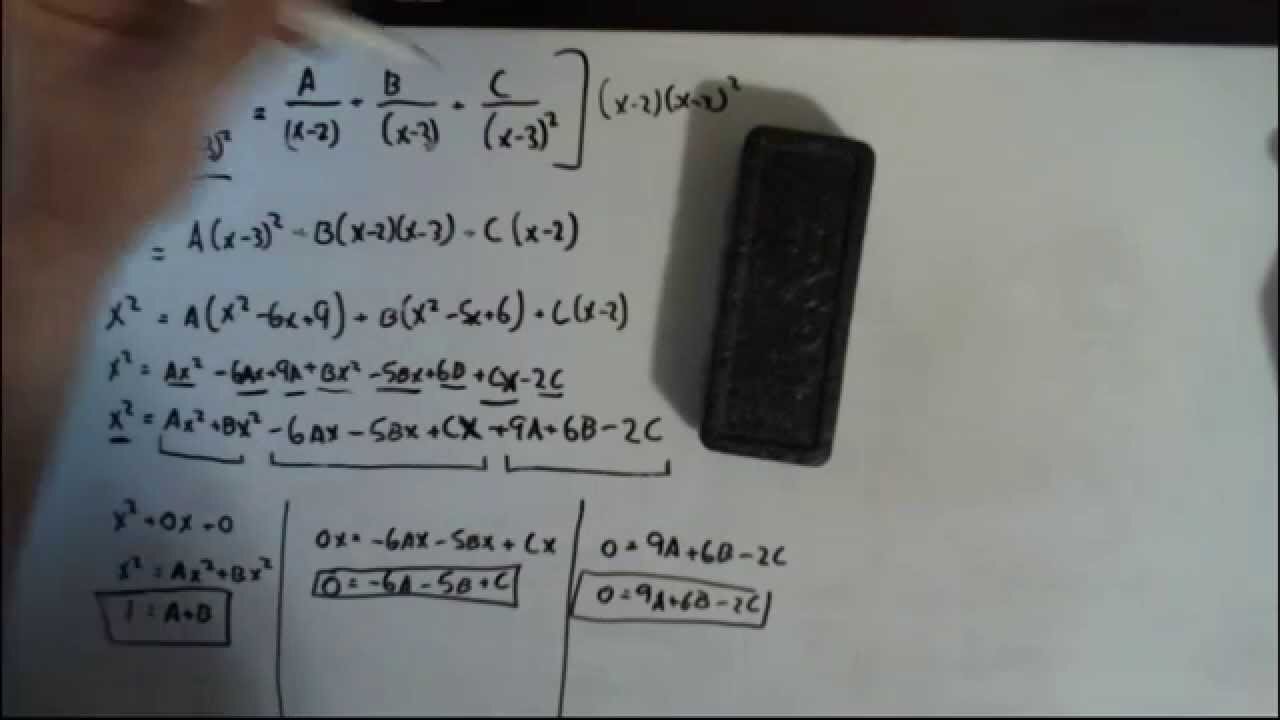 = A/(x-2) + B/(x-3) + C/(x-3)² ] (x-2)(x-3)²
3)²
= A(x-3)² + B(x-2)(x-3) + C(x-2)
x² = A(x²-6x+9) + B(x²-5x+6) + C(x-2)
x² = Ax² -6Ax+9A+Bx² -5Bx+6B +Cx-2C
x² = Ax²+Bx² -6Ax-5Bx+Cx +9A+6B-2C
x²+0x+0
x² = Ax²+Bx²
1 = A+B
0x = -6Ax-5Bx+Cx
0 = -6A-5B+C
0 = 9A+6B-2C
0 = 9A+6B-2C